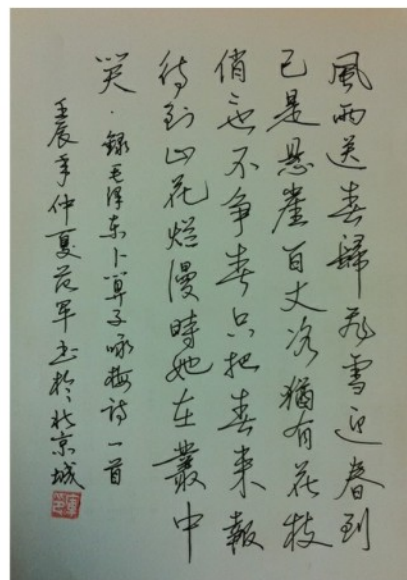 風雨送春歸飛雪迎春到
已是懸崖百丈冰猶有花枝
俏俏也不争春只把春来報
待到山花爛漫時她在叢中
笑·録毛泽东卜算子咏梅诗一首
壬辰年仲夏范军书於北京城